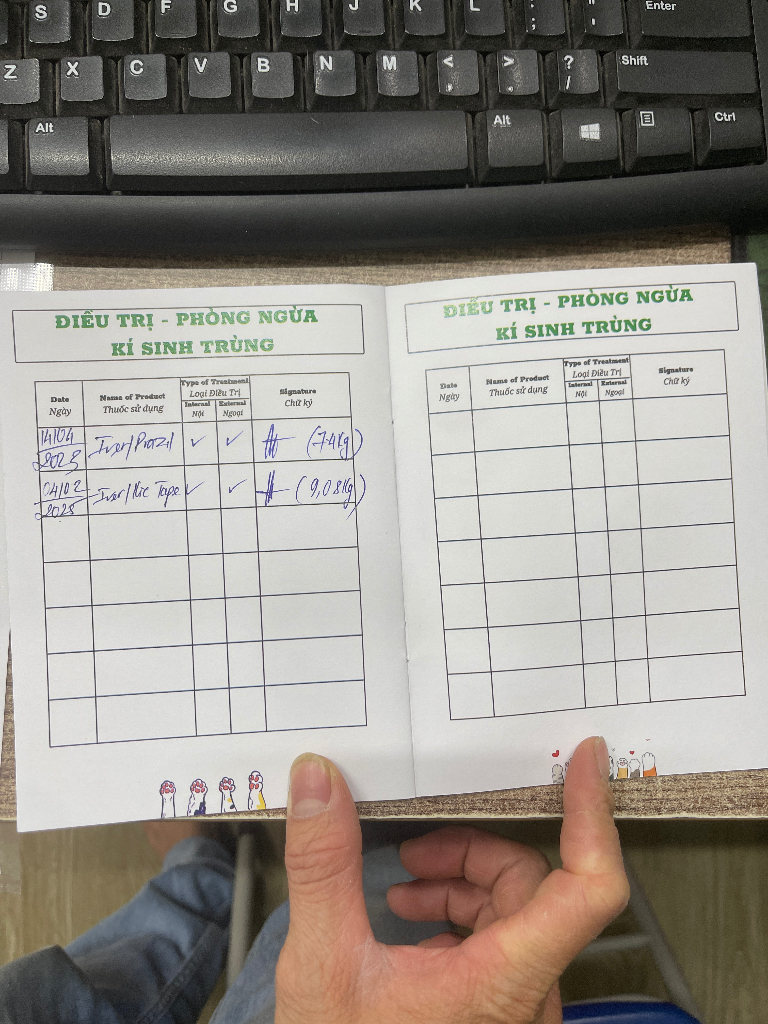 S D F G H J K L : ; " ' Enter
Z X C V B N M < , > . ? / Shift
Alt Alt Ctrl
ĐIỀU TRỊ - PHÒNG NGỪA
KÍ SINH TRÙNG
Date
Ngày
Name of Product
Thuốc sử dụng
Type of Treatment
Loại Điều Trị
Internal
Nội
External
Ngoại
Signature
Chữ ký
14/04
2023
Iver/Prazil ✓ ✓ (7.4Kg)
04/02
Iver/Nic Tape ✓ ✓ (9,08Kg)
ĐIỀU TRỊ - PHÒNG NGỪA
KÍ SINH TRÙNG
Date
Ngày
Name of Product
Thuốc sử dụng
Type of Treatment
Loại Điều Trị
Internal
Nội
External
Ngoại
Signature
Chữ ký